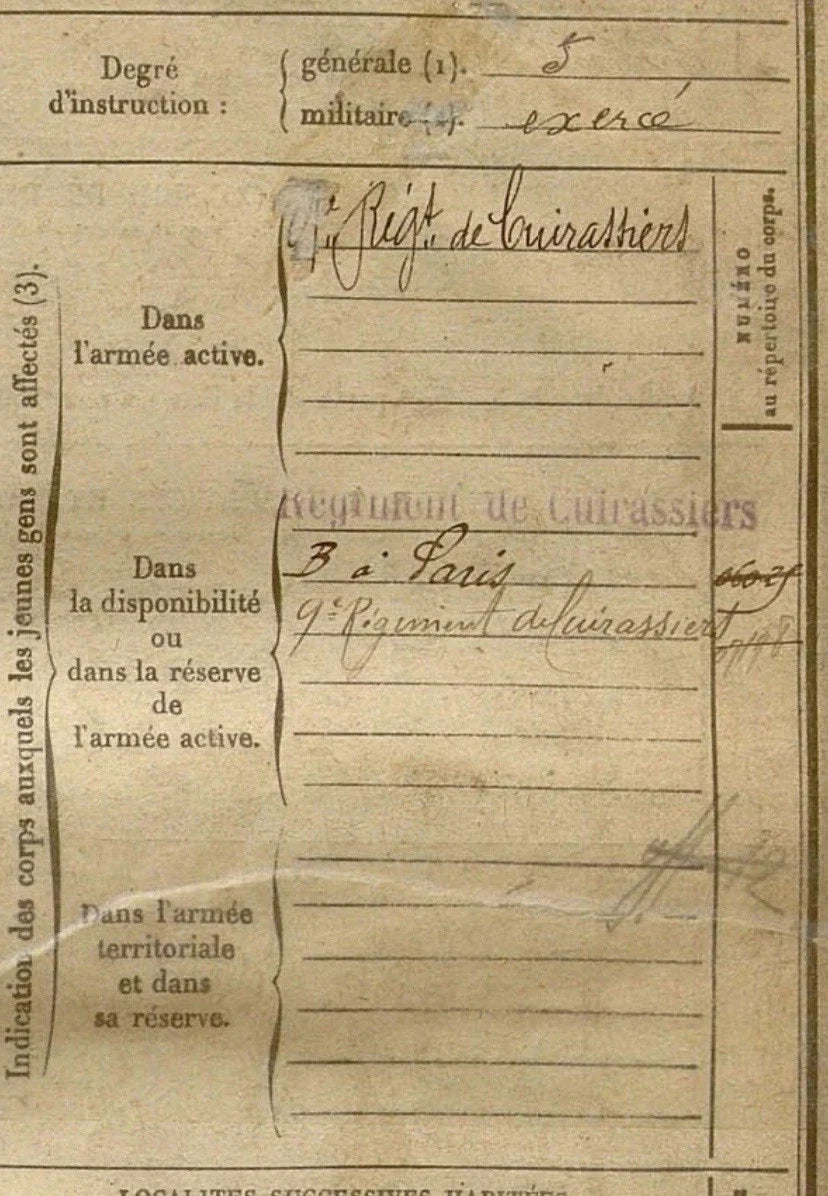 Degré
d'instruction :
générale (1). 5
militaire (2). exercé
Indication des corps auxquels les jeunes gens sont affectés (3).
Dans
l'armée active.
Régt. de Cuirassiers
NUMÉRO
au répertoire du corps.
Régiment de Cuirassiers
Dans
la disponibilité
ou
dans la réserve
de
l'armée active.
B à Paris
9e Régiment de Cuirassiers
Dans l'armée
territoriale
et dans
sa réserve.
LOCALITÉS SUCCESSIVES HABITÉES